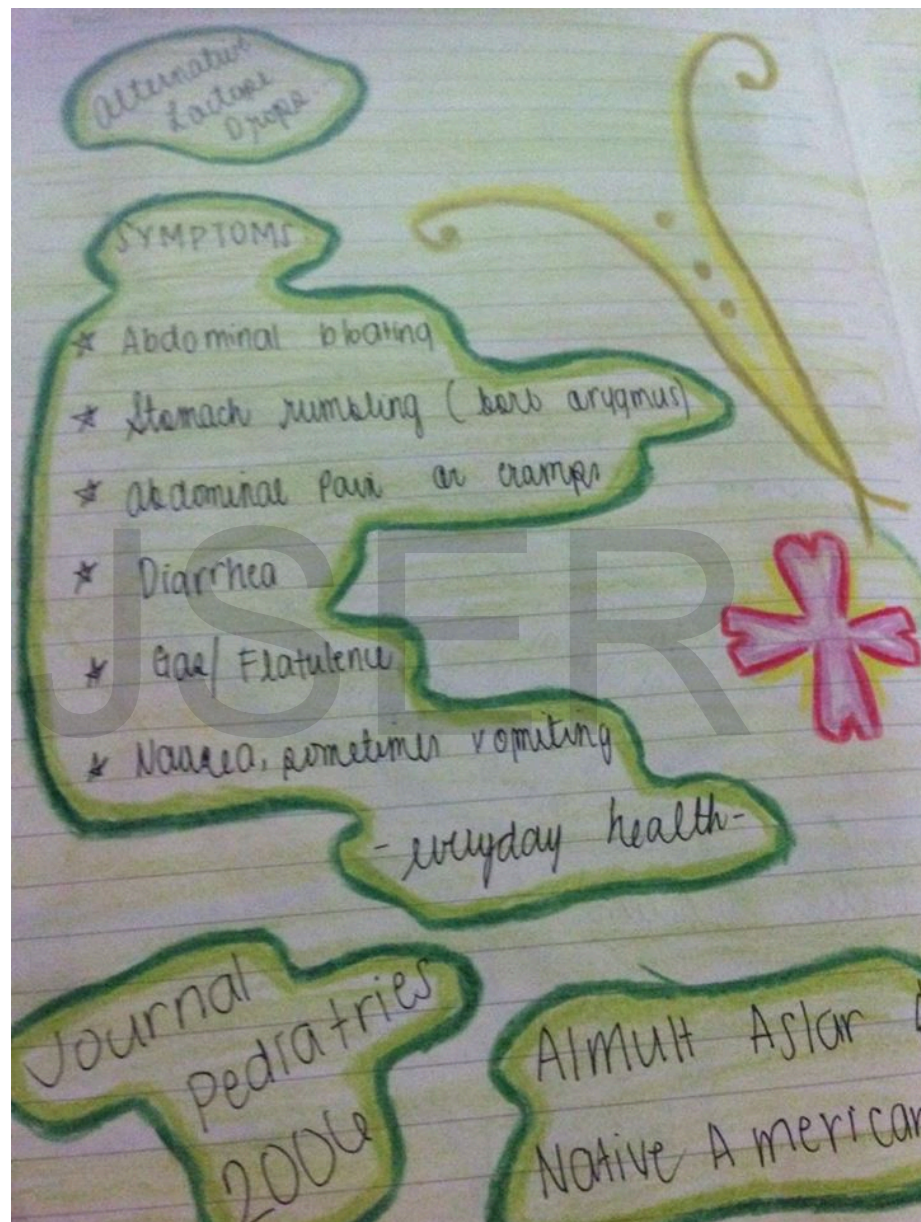 Alternative
Lactase
Drops
SYMPTOMS
* Abdominal bloating
* Stomach rumbling (borb arygmus)
* Abdominal Pain or cramps
* Diarrhea
* Gas/ Flatulence
* Nausea, sometimes vomiting
- everyday health -
Journal
Pediatries
2006
Almult Aslar
Native American
JSER